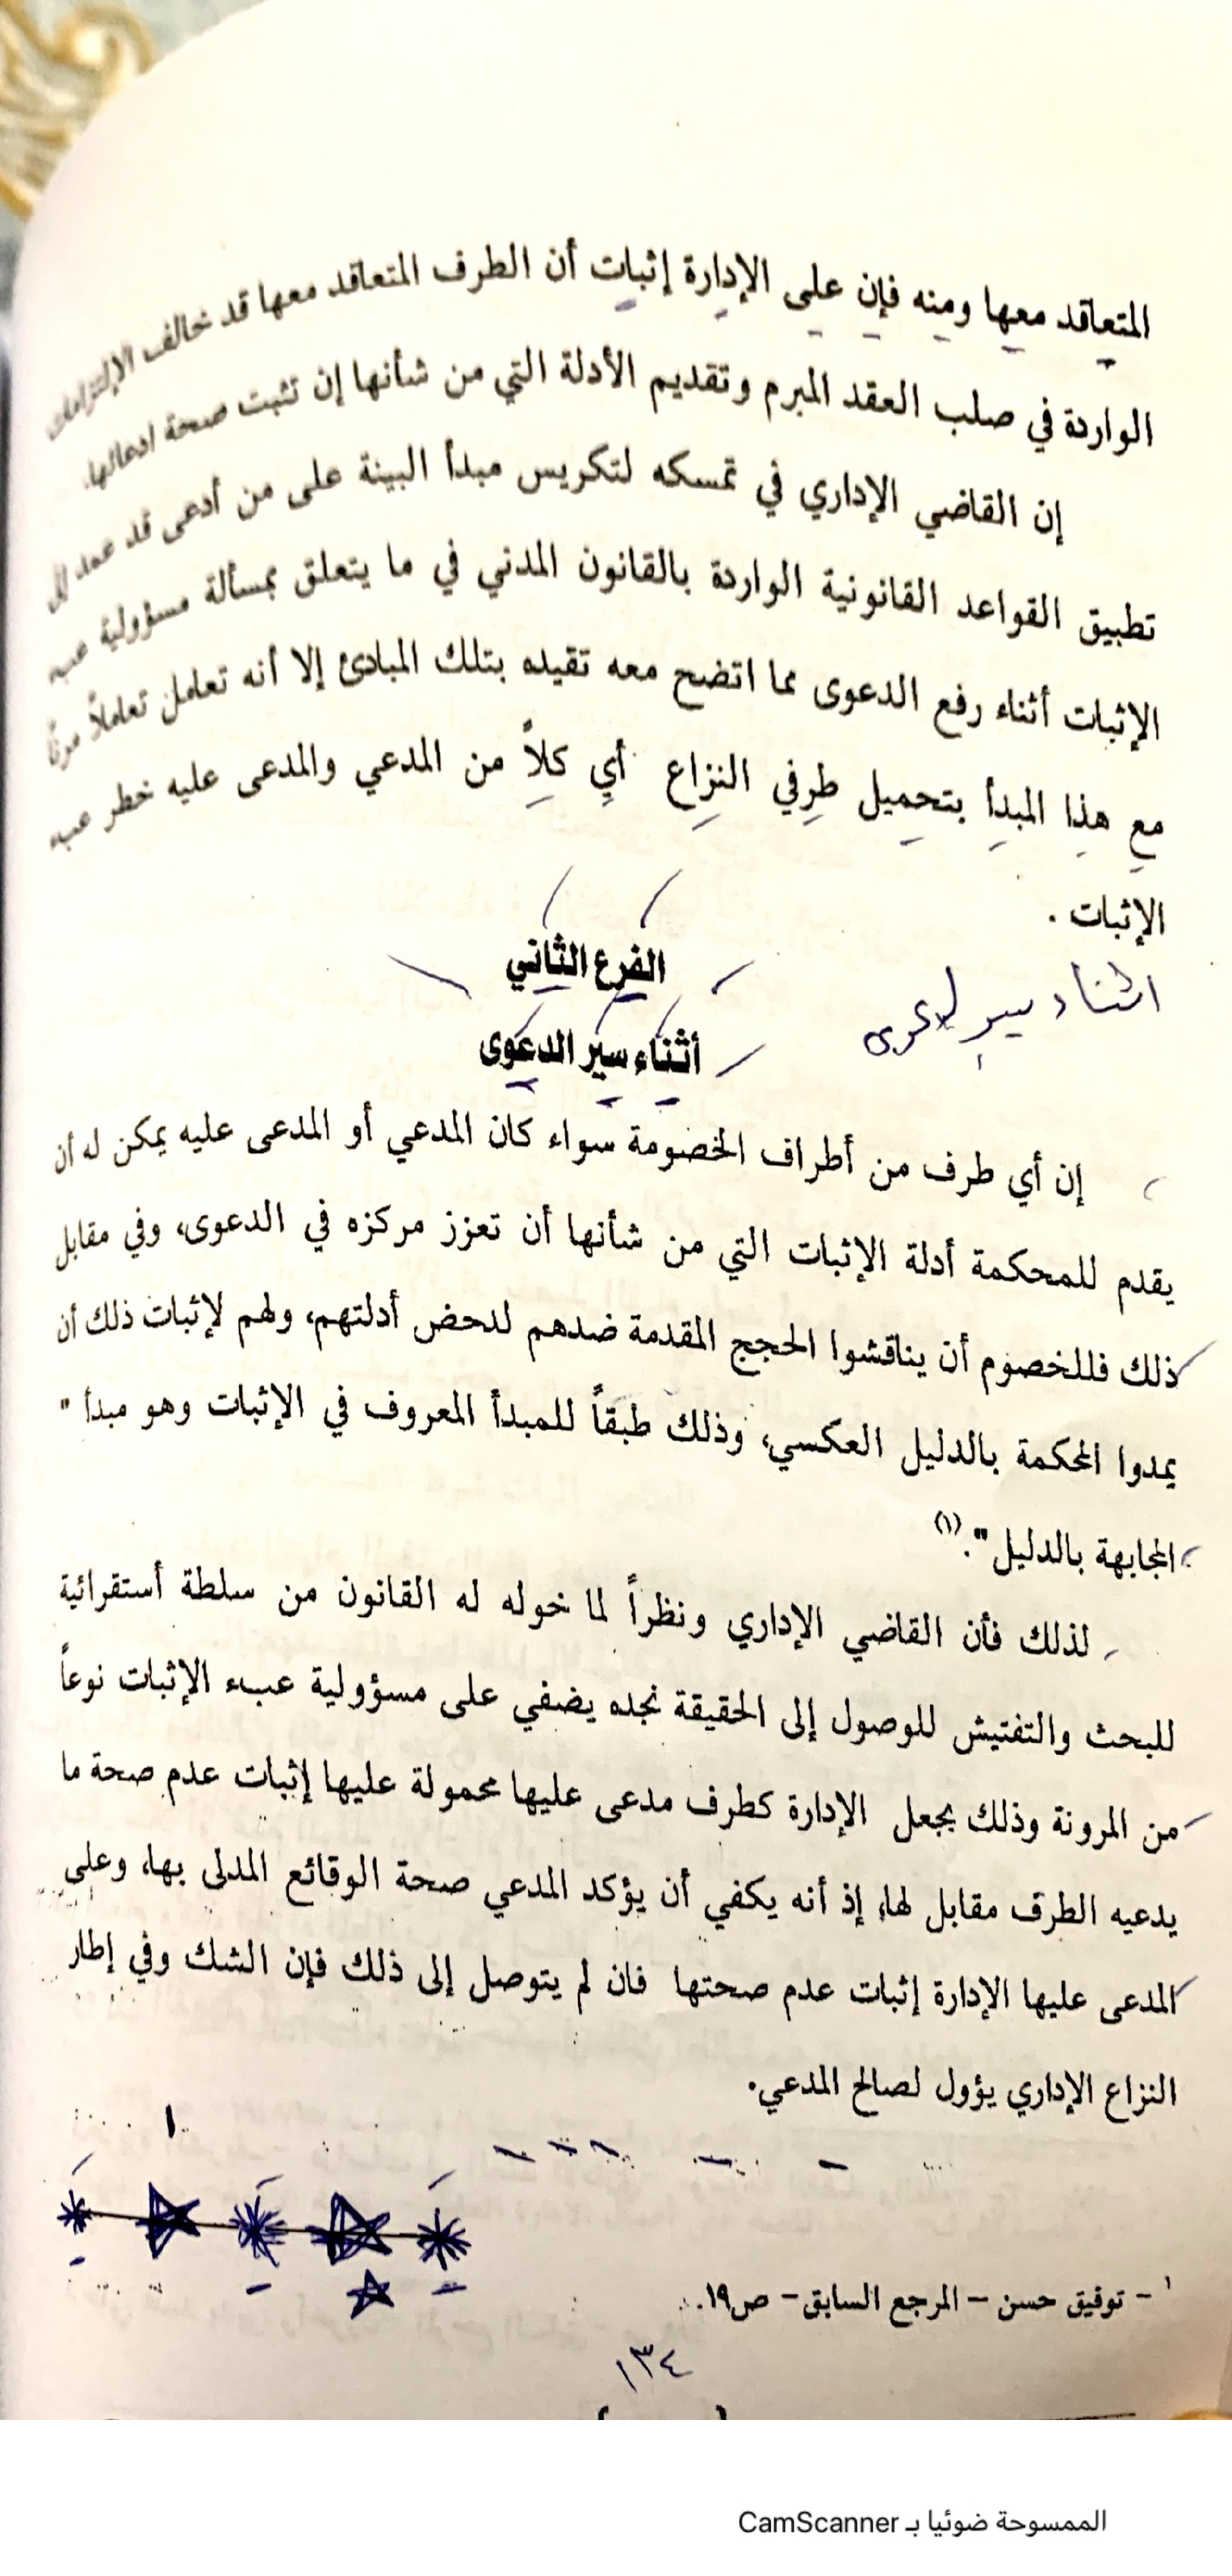 المتعاقد معها ومنه فإن على الإدارة إثبات أن الطرف المتعاقد معها قد خالف الإلتزامات
الواردة في صلب العقد المبرم وتقديم الأدلة التي من شأنها إن تثبت صحة ادعائها.
إن القاضي الإداري في تمسكه لتكريس مبدأ البينة على من أدعى قد عمد إلى
تطبيق القواعد القانونية الواردة بالقانون المدني في ما يتعلق بمسألة مسؤولية عبء
الإثبات أثناء رفع الدعوى مما اتضح معه تقيده بتلك المبادئ إلا أنه تعامل تعاملاً مرنًا
مع هذا المبدأ بتحميل طرفي النزاع أي كلاً من المدعي والمدعى عليه خطر عبء
الإثبات .
الفرع الثاني
اثناء سير لدعوى
أثناء سير الدعوى
إن أي طرف من أطراف الخصومة سواء كان المدعي أو المدعى عليه يمكن له أن
يقدم للمحكمة أدلة الإثبات التي من شأنها أن تعزز مركزه في الدعوى، وفي مقابل
ذلك فللخصوم أن يناقشوا الحجج المقدمة ضدهم لدحض أدلتهم، ولهم لإثبات ذلك أن
يمدوا المحكمة بالدليل العكسي، وذلك طبقاً للمبدأ المعروف في الإثبات وهو مبدأ "
المجابهة بالدليل".(١)
لذلك فأن القاضي الإداري ونظراً لما خوله له القانون من سلطة أستقرائية
للبحث والتفتيش للوصول إلى الحقيقة نجده يضفي على مسؤولية عبء الإثبات نوعاً
من المرونة وذلك بجعل الإدارة كطرف مدعى عليها محمولة عليها إثبات عدم صحة ما
يدعيه الطرف مقابل لها، إذ أنه يكفي أن يؤكد المدعي صحة الوقائع المدلى بها، وعلى
المدعى عليها الإدارة إثبات عدم صحتها فان لم يتوصل إلى ذلك فإن الشك وفي إطار
النزاع الإداري يؤول لصالح المدعي.
١ - توفيق حسن - المرجع السابق - ص١٩.
١٣٤
الممسوحة ضوئيا بـ CamScanner